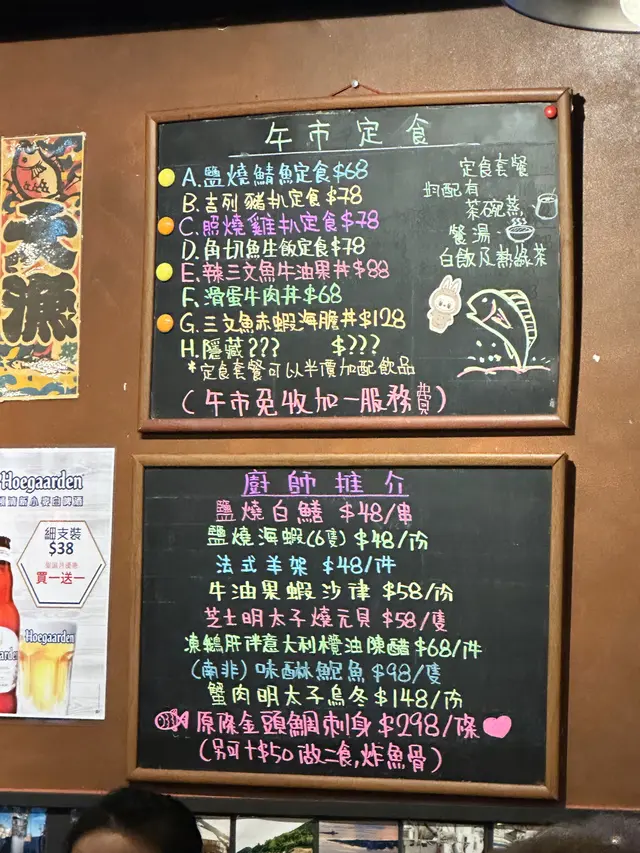 午市定食
A.鹽燒鯖魚定食$68
B.吉列豬扒定食$78
C.照燒雞扒定食$78
D.角切魚生飯定食$78
E.辣三文魚牛油果丼$88
F.滑蛋牛肉丼$68
G.三文魚赤蝦海膽丼$128
H.隱藏??? $???
*定食套餐可以半價加配飲品
(午市免收加一服務費)
定食套餐
均配有
茶碗蒸
餐湯
白飯及熱綠茶
Hoegaarden
細支裝
$38
買一送一
Hoegaarden
廚師推介
鹽燒白鱔 $48/串
鹽燒海蝦(6隻)$48/份
法式羊架 $48/件
牛油果蝦沙律 $58/份
芝士明太子燒元貝 $58/隻
凍鵝肝伴意大利欖油陳醋 $68/件
(南非)味醂鮑魚 $98/隻
蟹肉明太子烏冬 $148/份
原條金頭鯛刺身 $298/條
(另可+$50做二食,炸魚骨)